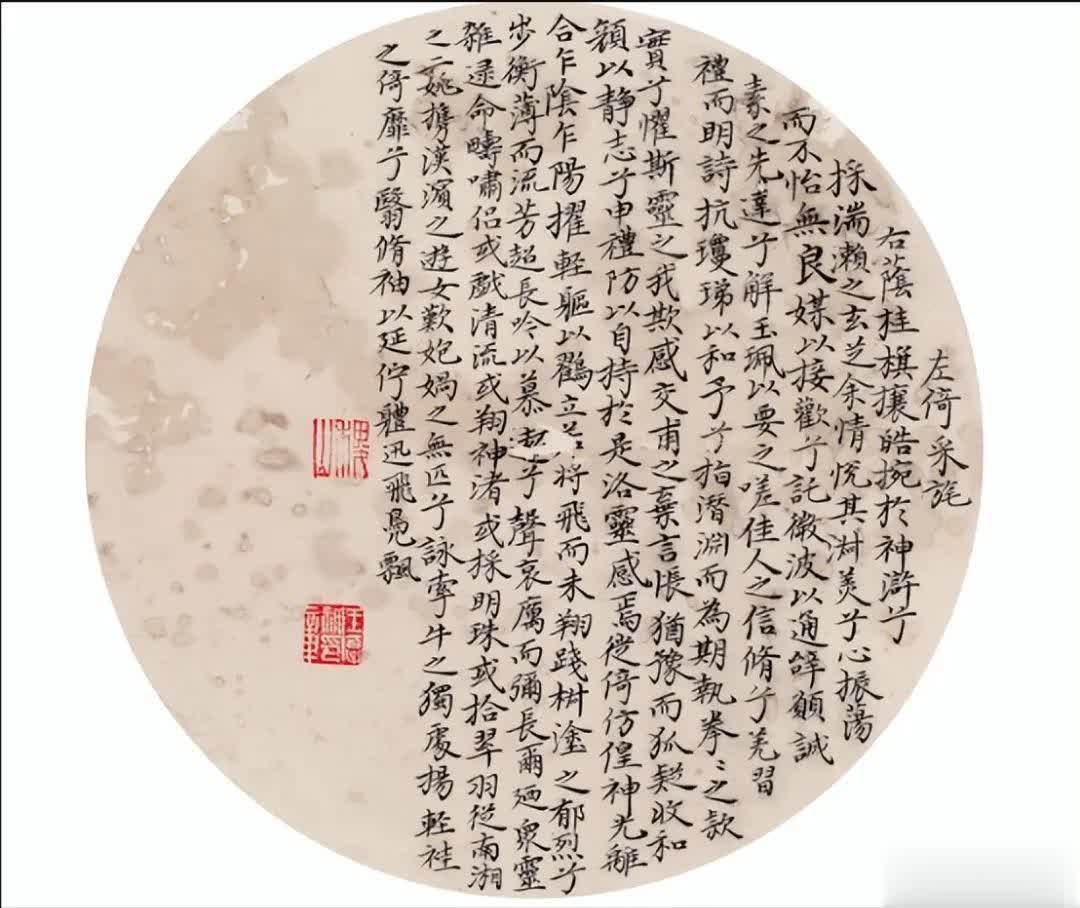 左倚采旄
右蔭桂旗攘皓捥於神滸兮
採湍瀨之玄芝余情悅其淑美兮心振蕩
而不怡無良媒以接歡兮託微波以通辭願誠
素之先達兮解玉珮以要之嗟佳人之信脩兮羌習
禮而明詩抗瓊珶以和予兮指潛淵而為期執拳〻之款
實兮懼斯靈之我欺感交甫之棄言悵猶豫而狐疑收和
顏以靜志兮申禮防以自持於是洛靈感焉徙倚仿偟神光離
合乍陰乍陽擢輕軀以鶴立若將飛而未翔踐椒塗之郁烈兮
步衡薄而流芳超長吟以慕遠兮聲哀厲而彌長爾迺眾靈
雜遝命疇嘯侶或戲清流或翔神渚或採明珠或拾翠羽從南湘
之二姚攜漢濱之遊女歎匏媧之無匹兮詠牽牛之獨處揚輕袿
之倚靡兮翳脩袖以延佇體迅飛鳧飄